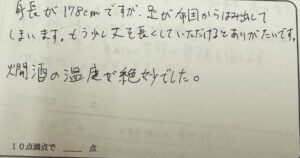 身長が178cmですが、足が布団からはみ出して
しまいます。もう少し丈を長くしていただけるとありがたいです。
燗酒の温度が絶妙でした。
10点満点で＿＿点